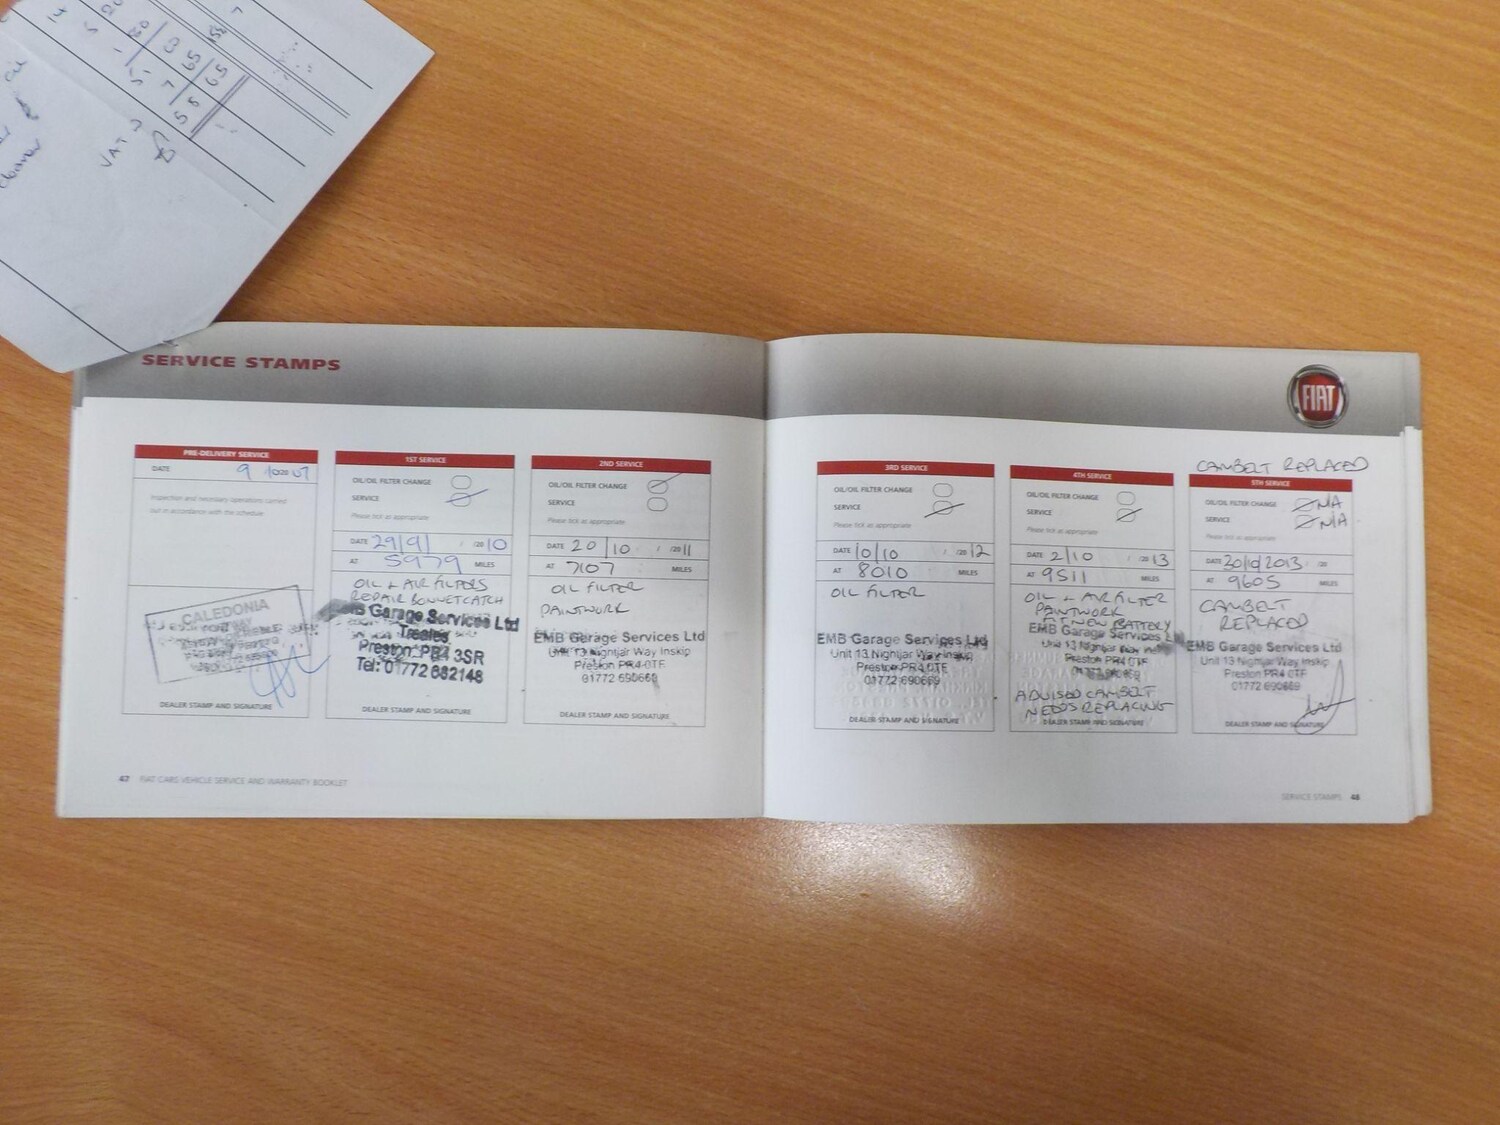 VAT
SERVICE STAMPS
FIAT
PRE-DELIVERY SERVICE
DATE 9 10 2007
Inspection and necessary operations carried
out in accordance with the schedule
CALEDONIA
1ST SERVICE
OIL/OIL FILTER CHANGE
SERVICE
Please tick as appropriate
DATE 29/9/ /20 10
AT 5979 MILES
OIL + AIR FILTERS
REPAIR BONNET CATCH
Garage Services Ltd
Treales
Preston. PR4 3SR
Tel: 01772 682148
DEALER STAMP AND SIGNATURE
2ND SERVICE
OIL/OIL FILTER CHANGE
SERVICE
Please tick as appropriate
DATE 20/10 / /20 11
AT 7107 MILES
OIL FILTER
PAINTWORK
EMB Garage Services Ltd
Unit 13 Nightjar Way Inskip
Preston PR4 0TF
01772 690669
DEALER STAMP AND SIGNATURE
3RD SERVICE
OIL/OIL FILTER CHANGE
SERVICE
Please tick as appropriate
DATE 10/10 /20 12
AT 8010 MILES
OIL FILTER
EMB Garage Services Ltd
Unit 13 Nightjar Way Inskip
Preston PR4 0TF
01772 690669
DEALER STAMP AND SIGNATURE
4TH SERVICE
OIL/OIL FILTER CHANGE
SERVICE
Please tick as appropriate
DATE 2/10 /20 13
AT 9511 MILES
OIL + AIR FILTER
PAINTWORK
FIT NEW BATTERY
EMB Garage Services
Unit 13 Nightjar Way
Preston PR4 0TF
ADVISED CAMBELT
NEEDS REPLACING
DEALER STAMP AND SIGNATURE
CAMBELT REPLACED
5TH SERVICE
OIL/OIL FILTER CHANGE N/A
SERVICE N/A
DATE 30/10/2013 /20
AT 9605 MILES
CAMBELT
REPLACED
EMB Garage Services Ltd
Unit 13 Nightjar Way Inskip
Preston PR4 0TF
01772 690669
DEALER STAMP AND SIGNATURE
47 FIAT CARS VEHICLE SERVICE AND WARRANTY BOOKLET
SERVICE STAMPS 48